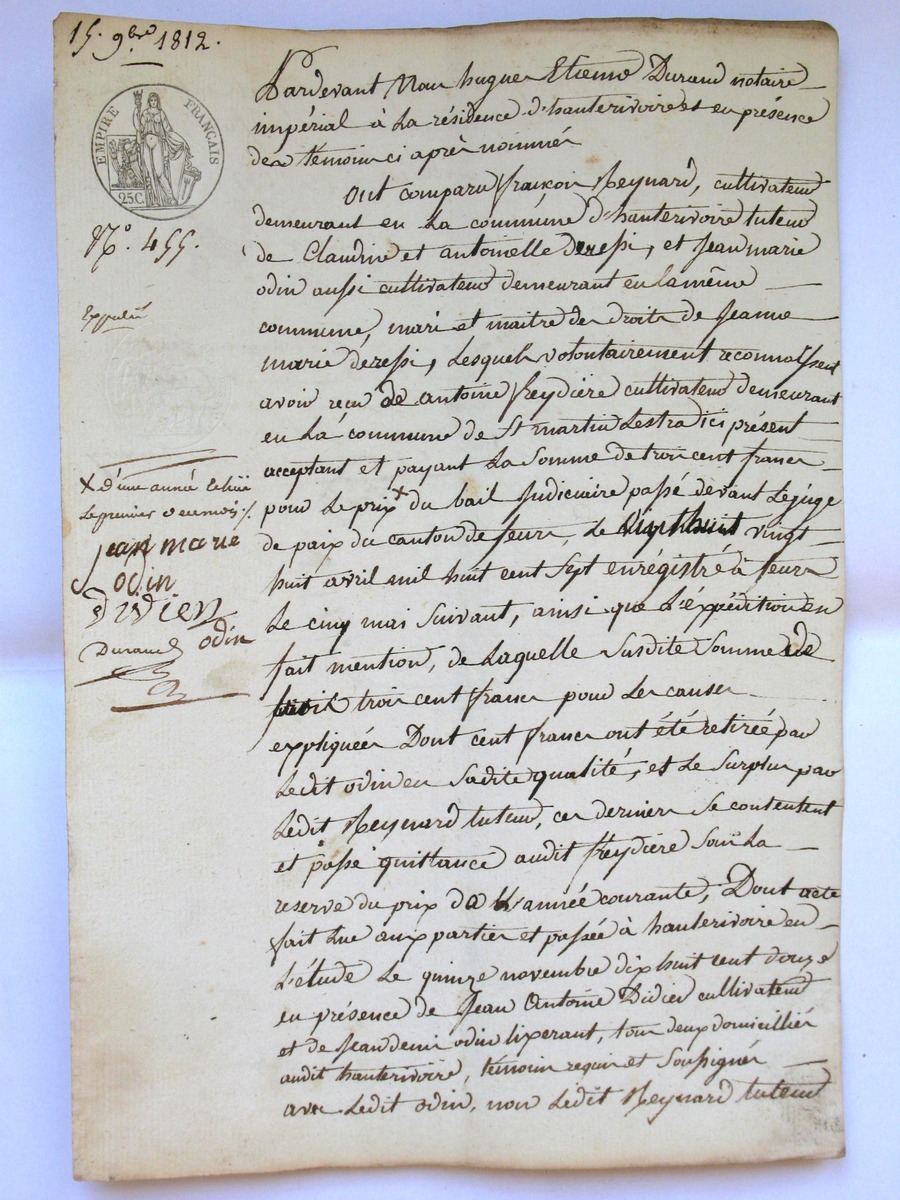 15. 9bre 1812.
EMPIRE FRANÇAIS
25 C.
N.° 455.
Pardevant Nous hugues Etienne Durand notaire
impérial à La résidence d'hauterivoire et en présence
des témoins ci après nommés
Ont comparu françois Reynard, cultivateur
demeurant en La commune d'hauterivoire tuteur
de Claudine et antoinette deressi, et Jean marie
odin aussi cultivateur demeurant en la même
commune, mari et maitre des droits de Jeanne
marie deressi, Lesquels volontairement reconnoissent
avoir reçu de antoine freydière cultivateur demeurant
en La commune de St martin Lestra ici présent
acceptant et payant La somme de trois cent francs
pour Le prix × du bail Judiciaire passé devant Le juge
de paix du canton de feurs, Le vingt huit vingt
huit avril mil huit cent sept enrégistré à feurs
Le cinq mai suivant, ainsi que L'expédition en
fait mention, de Laquelle susdite somme de
trois cent francs pour Les causes
expliquées Dont cent francs ont été retirée par
Ledit odin en sadite qualité, et Le surplus par
Ledit Reynard tuteur, ces derniers se contentent
et passé quittance audit freydière sous La
reserve du prix de L'année courante, Dont acte
fait Lue aux parties et passée à hauterivoire en
L'étude Le quinze novembre dix huit cent douze
en présence de Jean Antoine Didier cultivateur
et de Jean denis odin tixerant, tous deux domiciliés
audit hauterivoire, témoins requis et soussignés
avec Ledit odin, non Ledit Reynard tuteur
× d'une année échüe
Le premier du mois ./.
jean marie
odin
didier
odin
Durand